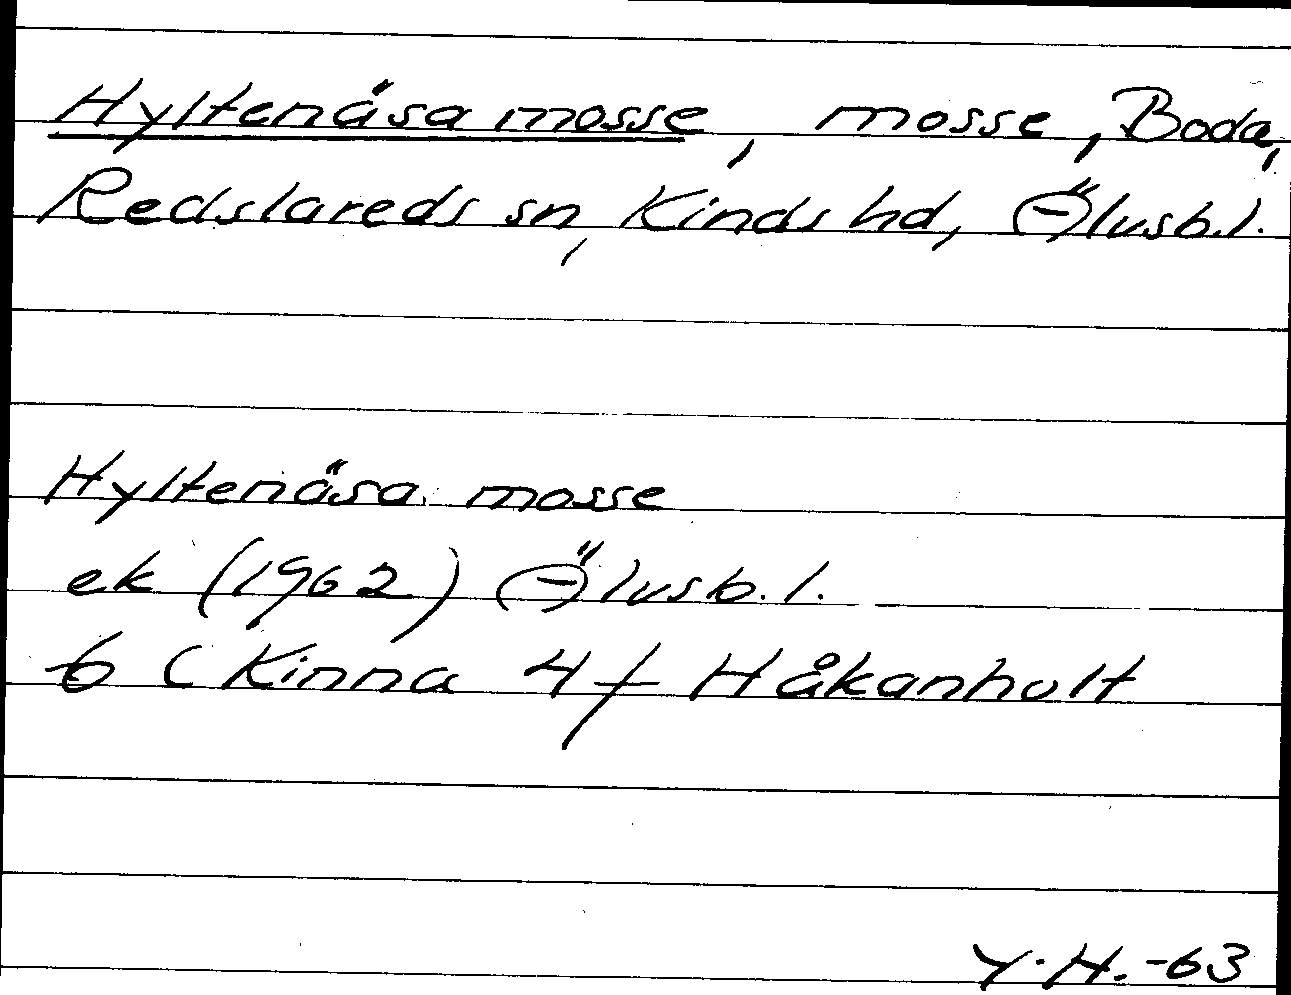 Hyltenäsa mosse, mosse, Boda,
Redslareds sn, Kinds hd, Älvsb.l.
Hyltenäsa mosse
ek (1962) Älvsb.l.
6 C Kinna 4 f Håkanhult
Y.H.-63